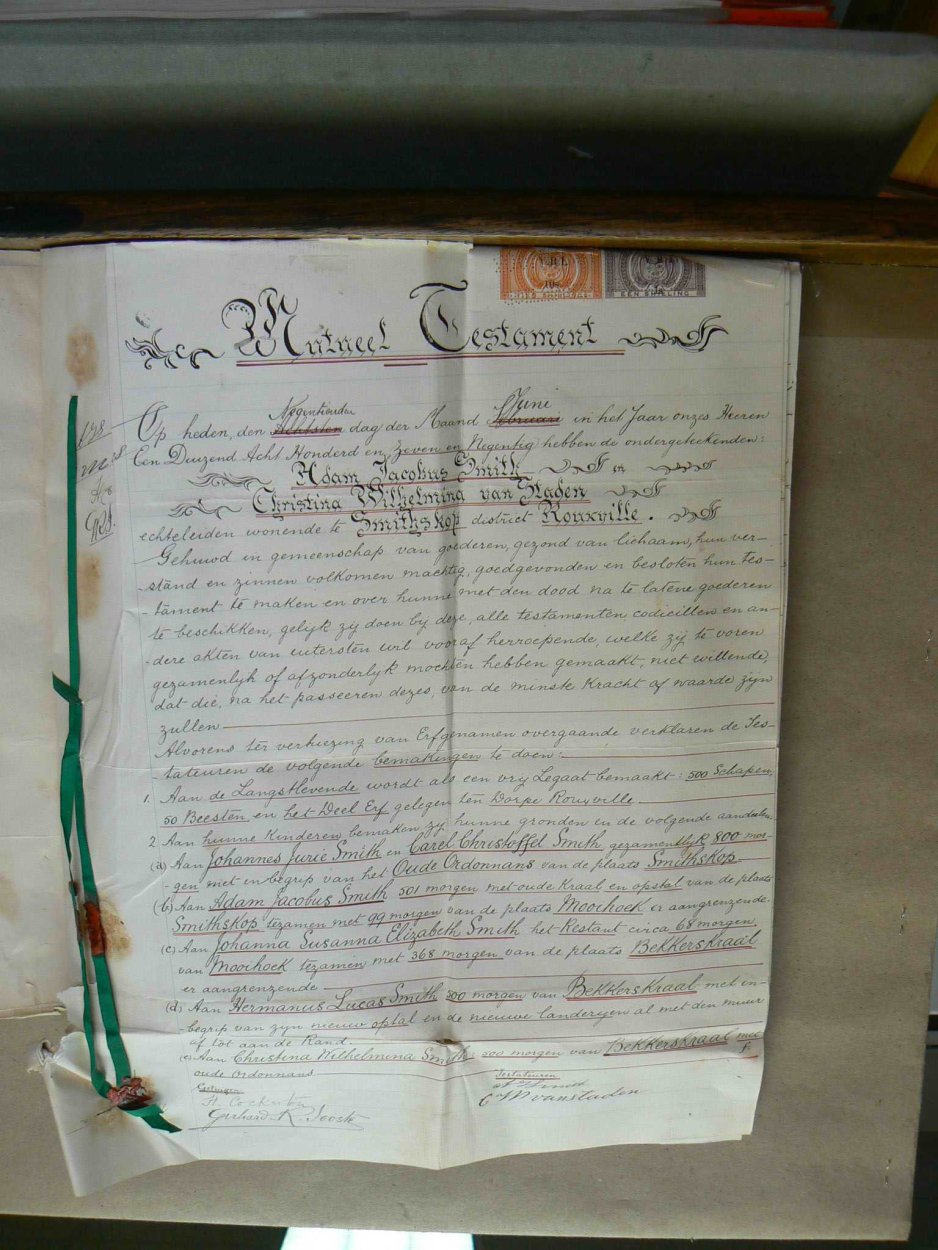 V.R.I. V.R.I.
EEN SHILLING
Mutueel Testament
Negentienden Juni
Op heden, den Achtsten dag der Maand Februari in het Jaar onzes Heeren
Een Duizend Acht Honderd en Zeven en Negentig hebben de ondergeteekenden:
Adam Jacobus Smith en
Christina Wilhelmina van Staden
echtelieden wonende te Smithskop district Rouxville.
Gehuwd in gemeenschap van goederen, gezond van lichaam, hun ver-
stand en zinnen volkomen machtig, goedgevonden en besloten hun Tes-
-tament te maken en over hunne met den dood na te latene goederen
te beschikken, gelijk zij doen by deze, alle testamenten, codicillen en an-
-dere akten van uitersten wil vooraf herroepende, welke zij te voren
gezamenlyk of afzonderlyk mochten hebben gemaakt, niet willende,
dat die, na het passeeren dezes, van de minste Kracht of waarde zijn
zullen
Alvorens ter verkiezing van Erfgenamen overgaande verklaren de Tes-
-tateuren de volgende bemakingen te doen:-
1. Aan de Langstlevende wordt als een vry Legaat bemaakt: 500 Schapen,
50 Beesten, en het Deel Erf gelegen ten Dorpe Rouxville.
2. Aan hunne Kinderen, bemaken zij hunne gronden in de volgende aandeelen.
(a) Aan Johannes Jurie Smith en Carel Christoffel Smith gezamentlyk 800 mor-
gen met inbegrip van het Oude Ordonnans van de plaats Smithskop.
(b) Aan Adam Jacobus Smith 501 morgen met oude Kraal en opstal van de plaats
Smithskop tezamen met 99 morgen van de plaats Mooihoek er aangrenzende.
(c) Aan Johanna Susanna Elizabeth Smith het Restant circa 68 morgen
van Mooihoek tezamen met 368 morgen van de plaats Bekkerskraal
er aangrenzende
(d) Aan Hermanus Lucas Smith 300 morgen van Bekkerskraal met in-
-begrip van zyn nieuw opstal en de nieuwe landeryen al met den muur
af tot aan de Rand.
(e) Aan Christina Wilhelmina Smith 500 morgen van Bekkerskraal met
oude Ordonnans.
Getuigen Testateuren
C W van Staden
Gerhard K. Jooste